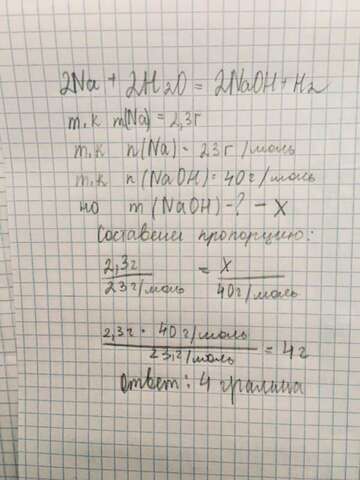 2Na + 2H2O = 2NaOH + H2
т.к m(Na) = 2,3г
т.к n(Na) - 23г/моль
т.к n(NaOH) = 40г/моль
но m(NaOH) - ? - X
Составим пропорцию:
2,3г = X
23г/моль 40г/моль
2,3г · 40г/моль
23,г/моль = 4г
ответ: 4 грамма